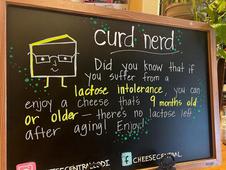 curd nerd
Did you know that if
you suffer from a
lactose intolerance, you can
enjoy a cheese that's 9 months old
or older — there's no lactose left
after aging! Enjoy!
CHEESECENTRALLODI
CHEESECENTRAL